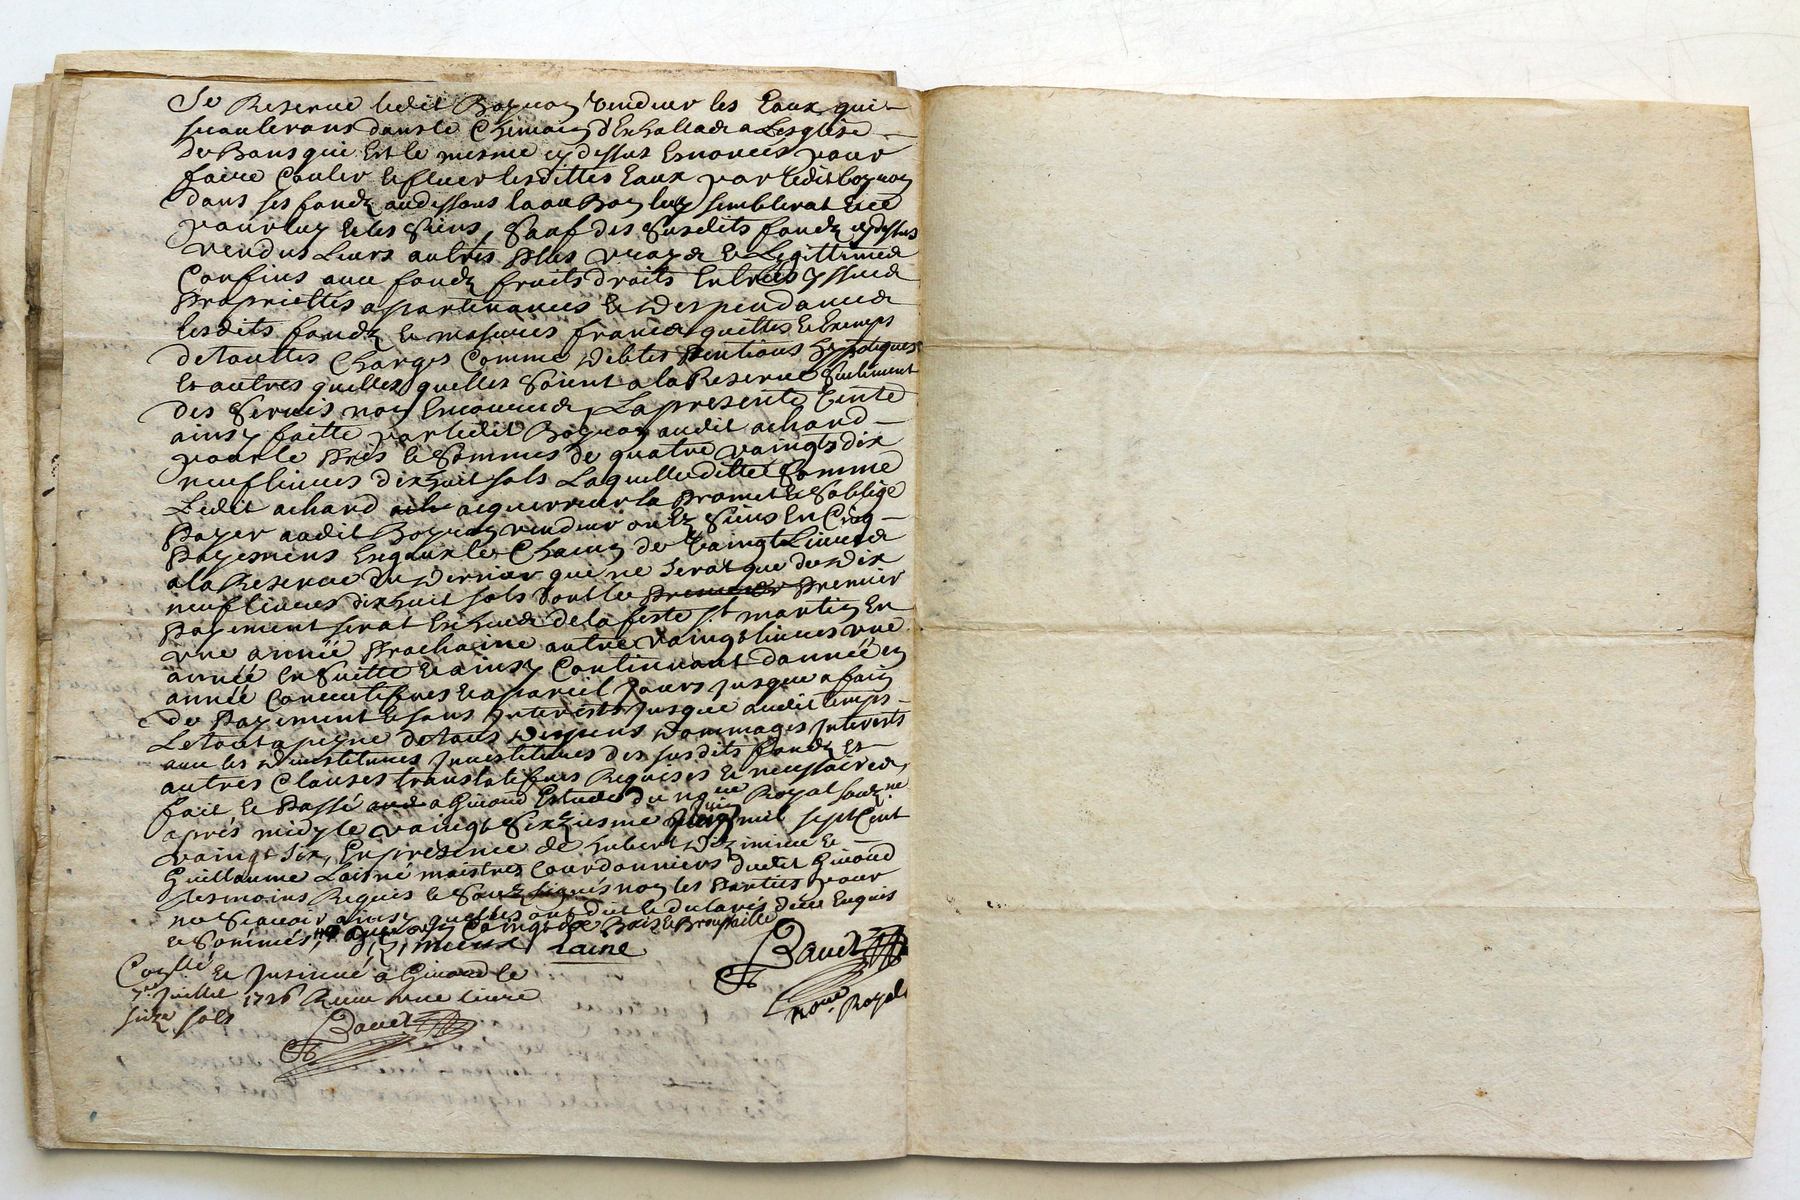 Se Reserve ledit Boznon vendeur les Eaux qui
se coulerons dans le Chemin d'Enhallac a Lesglise
de Bons qui Est le mesme cy dessus Enoncés pour
faire Couler et fluer lesdittes Eaux par ledit Boznon
dans ses fondz au dessous la ou Bon luy semblerat Et ce
pour luy et les siens, Sauf des Susdits fondz cy dessus
vendus Leurs autres plus vrays et Legittimes
Confins avec fondz fruits droits Entrées yssues
Proprietés apartenances et Despendances
lesdits fondz et masures francs quittes et Exempts
de touttes Charges Comme debtes pentions hypoteques
Et autres quelles quelles Soient a la Reserve Seulement
des Servis non Encourus, La presente Vente
ainsy faitte par ledit Boznon audit achard
pour le Pris et Somme de quatre vaingts dix
neuf livres dix huit sols Laquelle ditte Somme
Ledit achard acquerreur la Promet et S'oblige
Payer audit Boznon vendeur ou Ez Siens En Cinq
Payemens Esgaux les Chacun de Vaingt Livres
a la Reserve du Dernier qui ne Serat que de Dix
neuf livres dix huit sols dont le Premier Premier
Payement serat Escheus de la feste St martin En
une année Prochaine autre vaingt livres une
année En Suitte et ainsy Continuant d'année en
année Consecutifves et a pareil Jours Jusque a fain
de Payement et sans Interests Jusque audit temps
Le tout a peyne de tous Despens Dommages Interests
avec les Devestitures Jnvestitures des susdits fondz et
autres Clauses translatifves Requises et necessaires,
fait et Passé a Givord Estude du nore Royal souz.ne
après midy le vaingt Sixziesme Juin mil sept Cent
vaingt six, En presence de hubert Dizimieu et
Guillaume Lainé maistres Cordonniers dudit Givord
tesmoins Requis et Sousignés non les Parties pour
ne Scavoir ainsy quelles ont dit et declarés de ce Enquis
et Sommés,
Dizimieux Lainé
Bauet
nore Royal
Conllé et Jnsinué à Givord le
7e Juillet 1726 Receu une livre
seize sols
Bauet